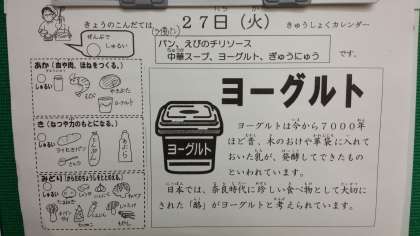 きょうのこんだては、
27日（火）
きゅうしょくカレンダー
ぜんぶで
しゅるい
パン、えびのチリソース
中華スープ、ヨーグルト、ぎゅうにゅう
です。
あか（血や肉、ほねをつくる。）
しゅるい
えび
ヨーグルト
き（ねつや力のもとになる。）
しゅるい
でんぷん
あぶら
みどり（からだのちょうしをととのえる。）
しゅるい
にんじん
ヨーグルト
ヨーグルト
ヨーグルトは今から７０００年
ほど昔、木のおけや革袋に入れて
おいた乳が、発酵してできたもの
といわれています。
日本では、奈良時代に珍しい食べ物として大切に
された「酪」がヨーグルトと考えられています。